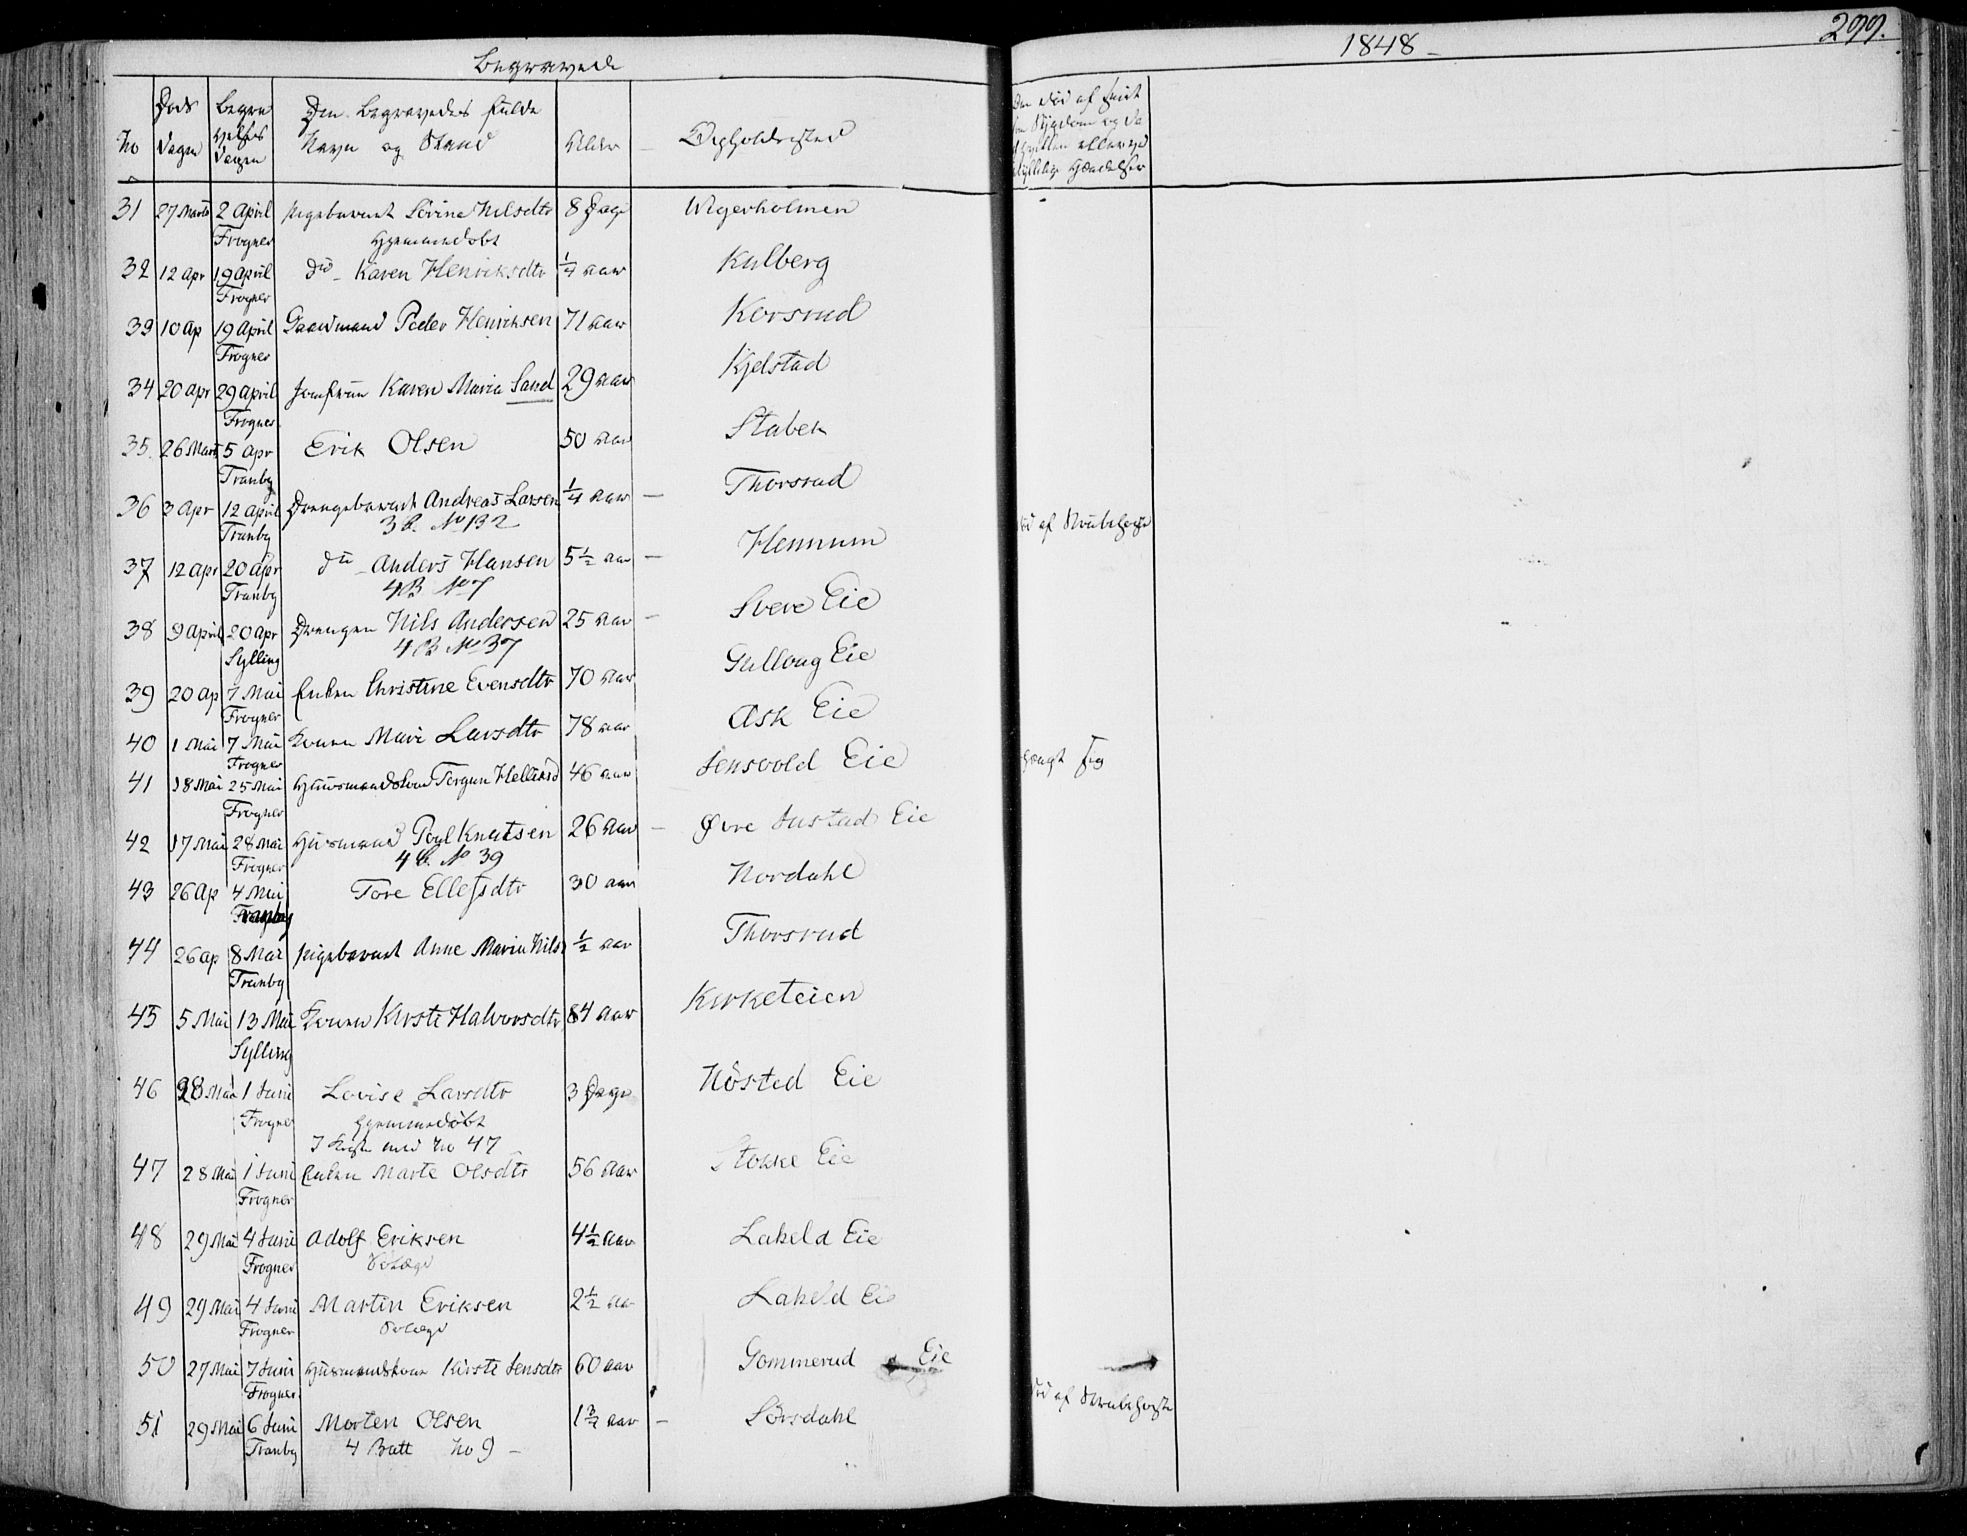 Begravede
1848
299.
No
Døds Dagen
Begravelses Dagen
Den Begravedes fulde Navn og Stand
Alder
Opholdssted
31 27 Marts 2 April Pigebarnet Lovine Nilsdtr 8 Dage
Frogner Hjemmedøbt
32 12 Apr 19 April do Karen Henriksdtr 1/4 aar Kulberg
Frogner
33 10 Ap 19 April Gaardmand Peder Henriksen 71 aar Korsrud
Frogner
34 20 Apr 29 April Jomfrue Karen Maria Sand 29 aar Kjelstad
Frogner
35 26 Marts 5 Apr Erik Olsen 50 aar Stabek
Tranby
36 3 Apr 12 April Drengebarnet Andreas Larsen 1/4 aar — Thorsrud
Tranby 3 B. No 132 død af Strubehoste
37 12 Apr 20 Apr do Anders Hansen 5 1/2 aar — Hennum
Tranby 4 B No 7
38 9 April 20 Apr Drengen Nils Andersen 25 aar — Svere Eie
Sylling 4 B No 37
39 20 Ap 7 Mai Enken Christine Evensdtr 70 aar Gulloug Eie
Frogner
40 1 Mai 7 Mai Konen Mari Larsdtr 78 aar Ask Eie
Frogner
41 18 Mai 25 Mai Huusmandskone Torgun Helliksd 46 aar Jensvold Eie hængt sig
Frogner
42 17 Mai 28 Mai Husmand Poul Knutsen 26 Aar — Øvre Justad Eie
Frogner 4 B. No 39
43 26 Ap 4 Mai Tore Ellefsdtr 30 aar Nordahl
Tranby
44 26 Ap 8 Mai Pigebarnet Anne Maria Nilsd 1/2 aar Thorsrud
Tranby
45 5 Mai 13 Mai Konen Kirsti Halvorsdtr 84 aar Kirketeien
Sylling
46 28 Mai 1 Juni Lovise Larsdtr 3 Dage Høsted Eie
Frogner Hjemmedøbt
I Kiste med No 47
47 28 Mai 1 Juni Enken Marte Olsdtr 56 aar Stokke Eie
Frogner
48 29 Mai 4 Juni Adolf Eriksen 4 1/2 aar Lakeld Eie
Frogner
49 29 Mai 4 Juni Martin Eriksen 2 1/2 aar Lakeld Eie
Frogner
50 27 Mai 7 Juni Husmandskone Kirsti Jensdtr 60 aar Gommerud Eie
Frogner
51 29 Mai 6 Juni Morten Olsen 1 3/4 aar — Sørsdahl død af Strubehoste
Tranby 4 Batt No 9 —